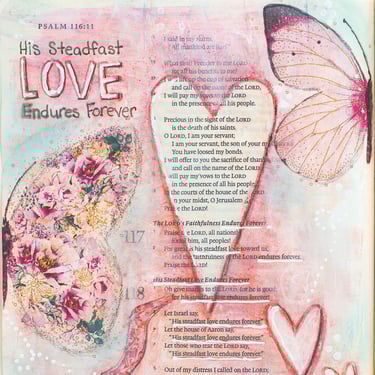 PSALM 116:11
His Steadfast
LOVE
Endures Forever
I said in my alarm,
"All mankind are liars."
What shall I render to the LORD
for all his benefits to me?
I will lift up the cup of salvation
and call on the name of the LORD,
I will pay my vows to the LORD
in the presence of all his people.
Precious in the sight of the LORD
is the death of his saints.
O LORD, I am your servant;
I am your servant, the son of your
You have loosed my bonds.
I will offer to you the sacrifice of thanks
and call on the name of the LORD.
I will pay my vows to the LORD
in the presence of all his people,
in the courts of the house of the LORD
in your midst, O Jerusalem
Praise the LORD!
The LORD's Faithfulness Endures Forever
117
Praise the LORD, all nations
Extol him, all peoples!
For great is his steadfast love toward us,
and the faithfulness of the LORD endures forever.
Praise the LORD!
His Steadfast Love Endures Forever
118
Oh give thanks to the LORD, for he is good;
for his steadfast love endures forever!
Let Israel say,
"His steadfast love endures forever."
Let the house of Aaron say,
"His steadfast love endures forever."
Let those who fear the LORD say,
"His steadfast love endures forever."
Out of my distress I called on the LORD;